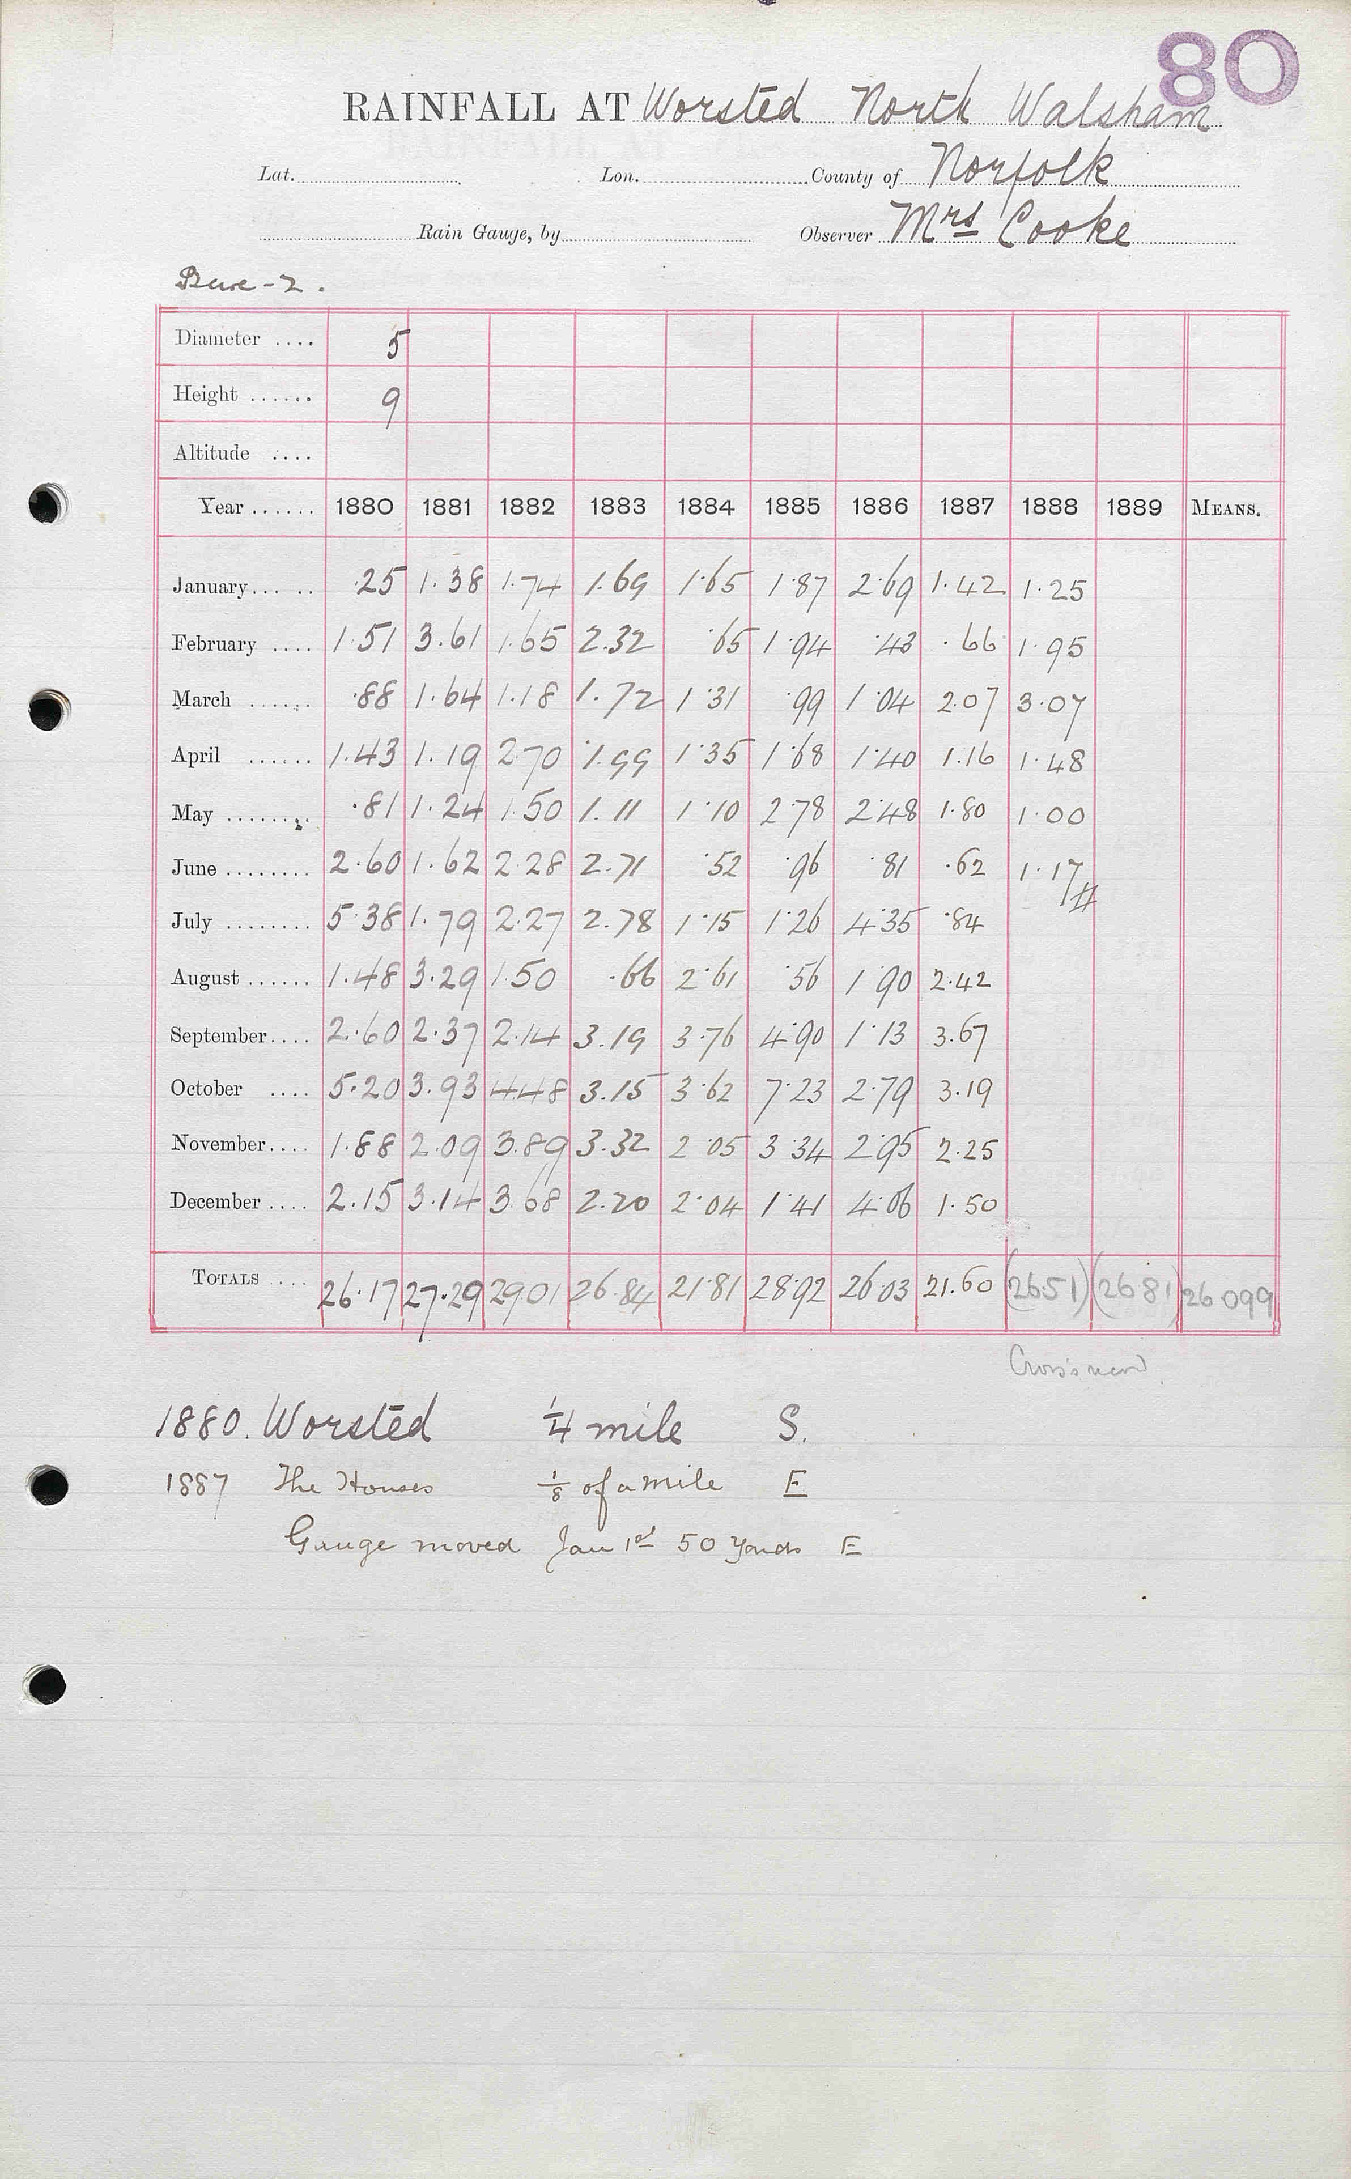 80
RAINFALL AT Worsted North Walsham
Lat. Lon. County of Norfolk
Rain Gauge, by Observer Mrs Cooke
Bure-2.
Diameter .... 5
Height ...... 9
Altitude ....
Year ...... 1880 1881 1882 1883 1884 1885 1886 1887 1888 1889 MEANS.
January ... .. .25 1.38 1.74 1.69 1.65 1.87 2.69 1.42 1.25
February .... 1.51 3.61 1.65 2.32 .65 1.94 .43 .66 1.95
March ...... .88 1.64 1.18 1.72 1.31 .99 1.04 2.07 3.07
April ...... 1.43 1.19 2.70 1.99 1.35 1.68 1.40 1.16 1.48
May ........ .81 1.24 1.50 1.11 1.10 2.78 2.48 1.80 1.00
June ........ 2.60 1.62 2.28 2.71 .52 .96 .81 .62 1.17//
July ........ 5.38 1.79 2.27 2.78 1.15 1.26 4.35 .84
August ...... 1.48 3.29 1.50 .66 2.61 .56 1.90 2.42
September.... 2.60 2.37 2.14 3.19 3.76 4.90 1.13 3.67
October .... 5.20 3.93 4.48 3.15 3.62 7.23 2.79 3.19
November.... 1.88 2.09 3.89 3.32 2.05 3.34 2.95 2.25
December .... 2.15 3.14 3.68 2.20 2.04 1.41 4.06 1.50
TOTALS .... 26.17 27.29 29.01 26.84 21.81 28.92 26.03 21.60 (26.51) (26.81) 26.099
1880. Worsted 1/4 mile S.
1887 The Houses 1/8 of a mile E
Gauge moved Jan 1st 50 Yards E